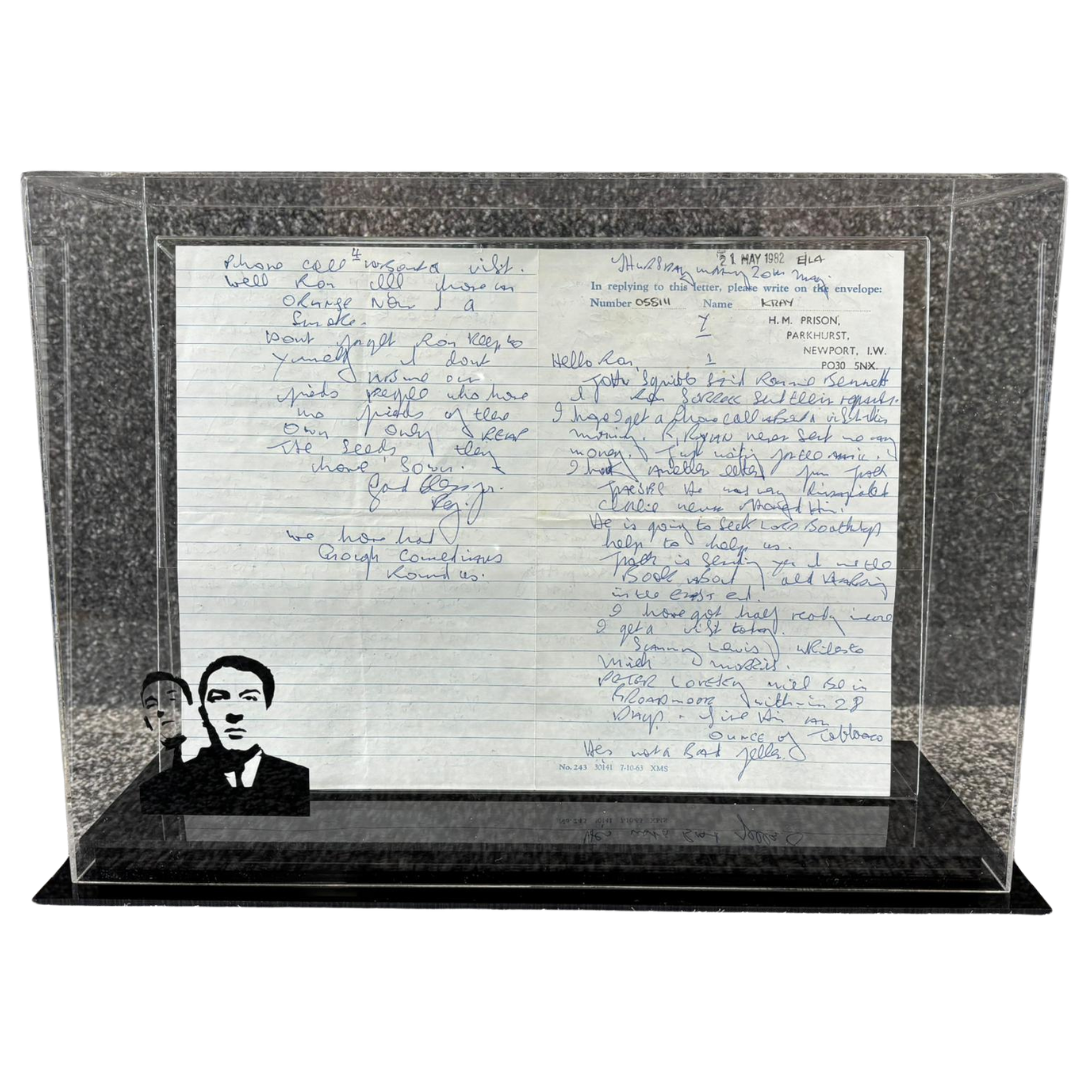 Phone call 4 visit.
Well Ron ill have an
orange now & a
Smoke.
Dont forget Ron keep to
yourself I dont
our
friends people who have
no friends of their
own only REAP
The Seeds they
have Sown.
God Bless for
Reg.
we have had
Enough Comedians
Round us.
21 MAY 1982 E/LA
THURSDAY 20th May.
In replying to this letter, please write on the envelope:
Number 05511 Name KRAY
7
H. M. PRISON,
PARKHURST,
NEWPORT, I.W.
PO30 5NX.
Hello Ron, 1
Squibb Said Ronnie Bennett
& Ron Sent their regards.
I hope I get a phone call a visit this
morning. RYAN never Sent me any
money. Just
I had another letter from
He was very dissapointed
Charlie never Him.
He is going to Seek Lord Boothbys
help to help us.
is Sending you & me the
Book about old
in the east end.
I have got half ready in case
I get a visit today.
Sammy Lewis writes to
Mick Morris.
PETER will be in
BROADMOOR within 28
Days. Give Him an
OUNCE of Tobbacco
Hes not a Bad fella.
No. 243 30141 7-10-63 XMS